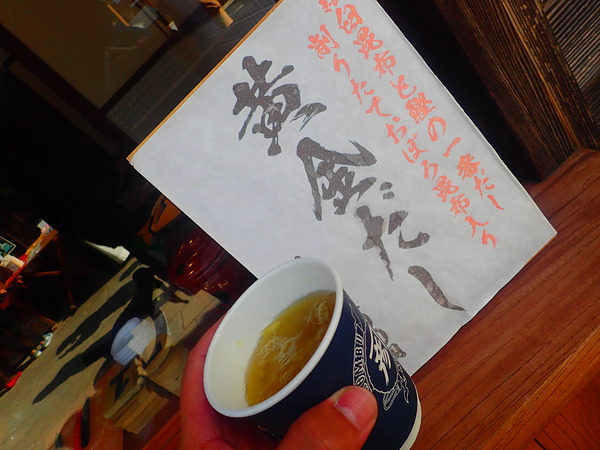 臼昆布と鰹の一番だし
削りたておぼろ昆布入り
黄金だし